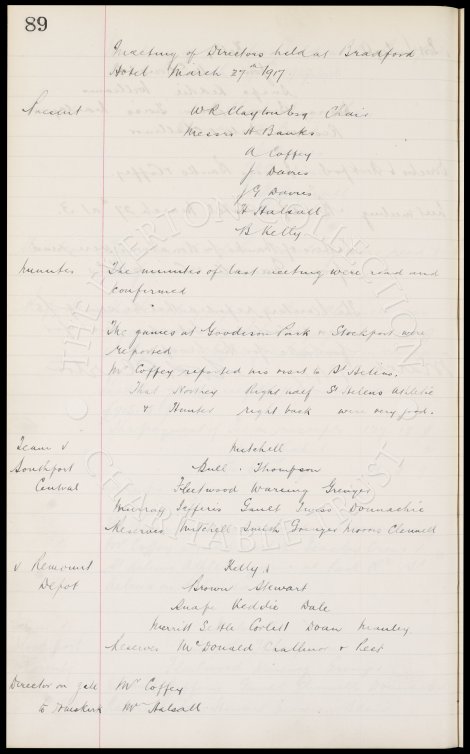 89
Meeting of Directors held at Bradford
Hotel March 27th 1917.
Present W R Clayton Esq Chair
Messrs H Banks
A Coffey
J. Davies
J G Davies
H Halsall
B Kelly
Minutes The minutes of last meeting were read and
confirmed
The games at Goodison Park & Stockport were
reported
Mr Coffey reported his visit to St Helens.
That Right Half St Helens Athletic
& Hunter right back were very good.
Team v Mitchell
Southport Bull. Thompson
Central Fleetwood Wareing Grenyer
Murray Jefferis Gault Donnachie
Reserves Mitchell Smith Grenyer Morris Clennell
v Remount Kelly
Depot Brown Stewart
Snape Keddie Dale
Merritt Corlett Doan Manley.
Reserves McDonald Challinor & Peet
Director on gate Mr Coffey
to Mr Halsall
THE EVERTON COLLECTION
CHARITABLE TRUST